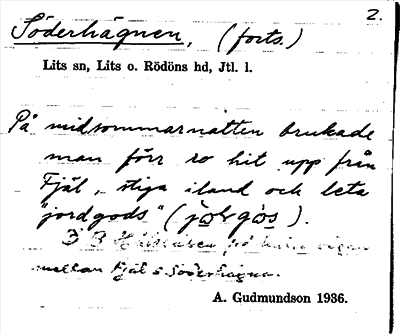 2.
Söderhägnen, (forts.)
Lits sn, Lits o. Rödöns hd, Jtl. l.
På midsommarnatten brukade
man förr ro hit upp från
Fjäl, stiga iland och leta
"jordgods" ( ).
mellan Fjäl o Söderhägna.
A. Gudmundson 1936.